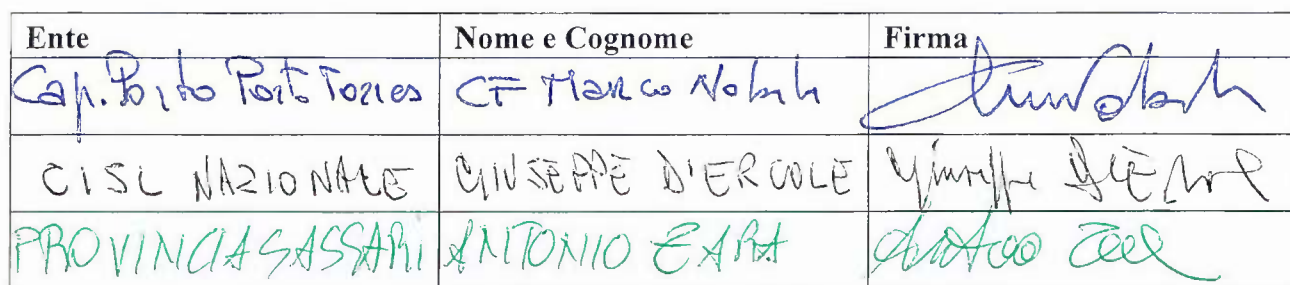 Ente Nome e Cognome Firma
Cap. Porto Porto Torres CF Marco Nobile
CISL NAZIONALE GIUSEPPE D'ERCOLE Giuseppe D'Ercole
PROVINCIA SASSARI ANTONIO ZARA Antonio Zara